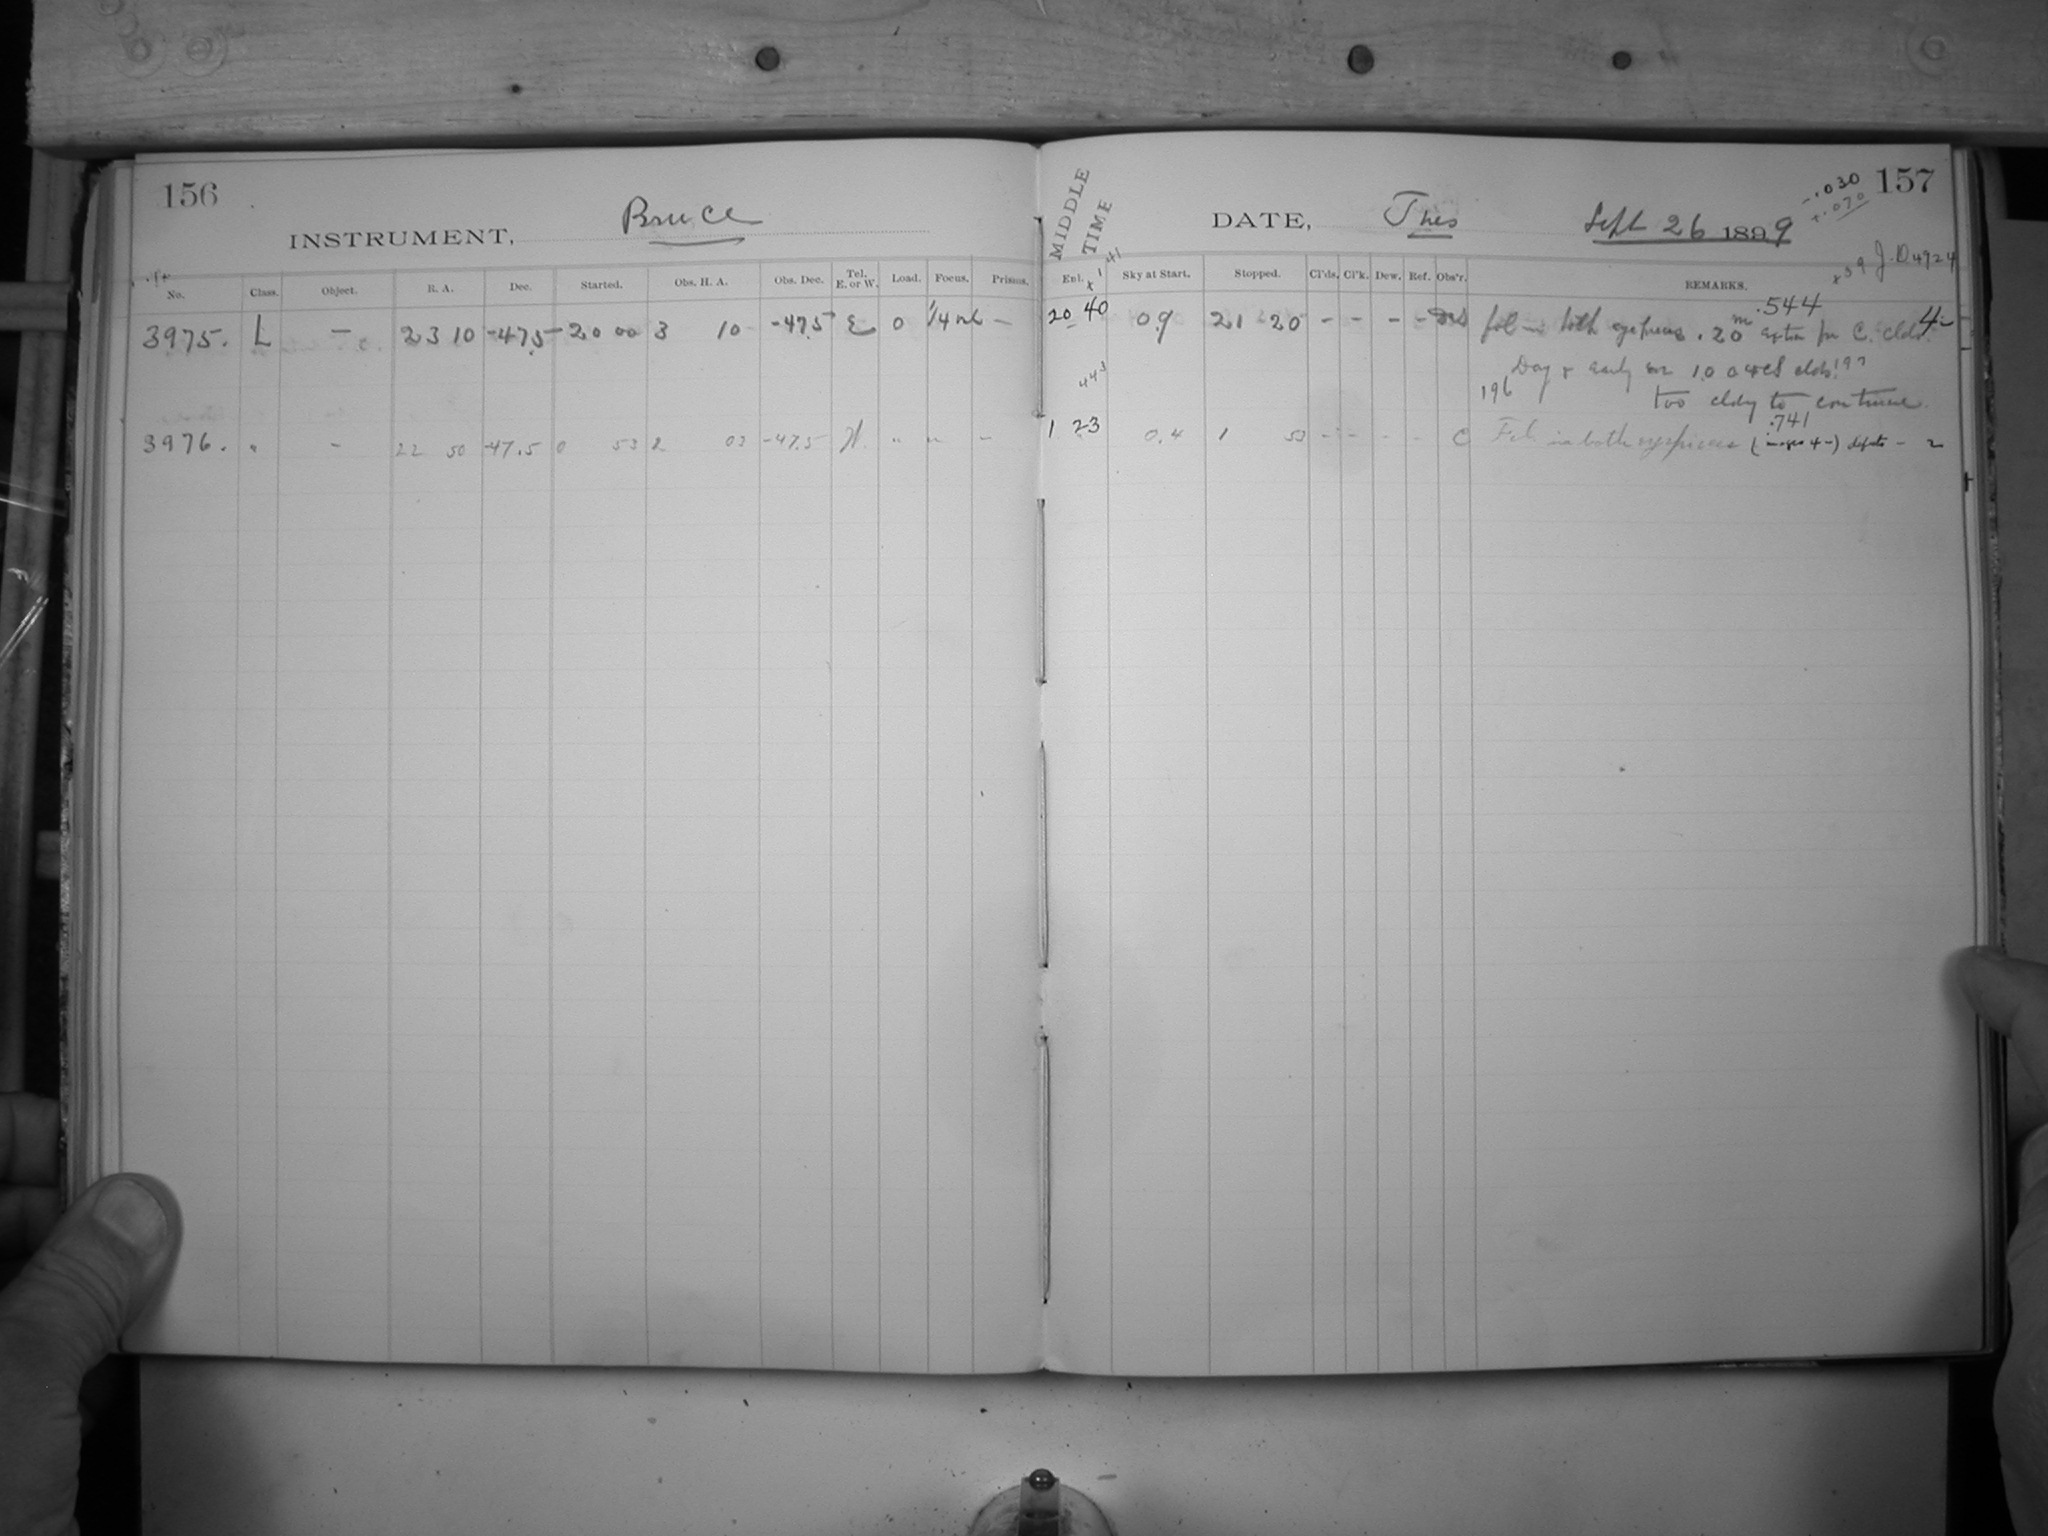 156
INSTRUMENT, Bruce
No. Class. Object. R. A. Dec. Started. Obs. H. A. Obs. Dec. Tel. E. or W. Load. Focus. Prisms.
3975. L — 23 10 -47.5 20 00 3 10 -47.5 E 0 —
3976. " - 22 50 -47.5 0 53 2 03 -47.5 W. " " -
MIDDLE TIME
DATE, Tues Sept 26 1899
157
-.030
+.070
J.D. 4724
Enl. Sky at Start. Stopped. Cl'ds. Cl'k. Dew. Ref. Obs'r. REMARKS.
.544
20 40 0.9 21 20 - - - - fol in both eyepieces. 20m extra for C. clds. 4-
Day & early
196 too cldy to continue
.741
1 23 0.4 1 53 - - - - C Fol. in both eyepieces (images 4-) defects - 2